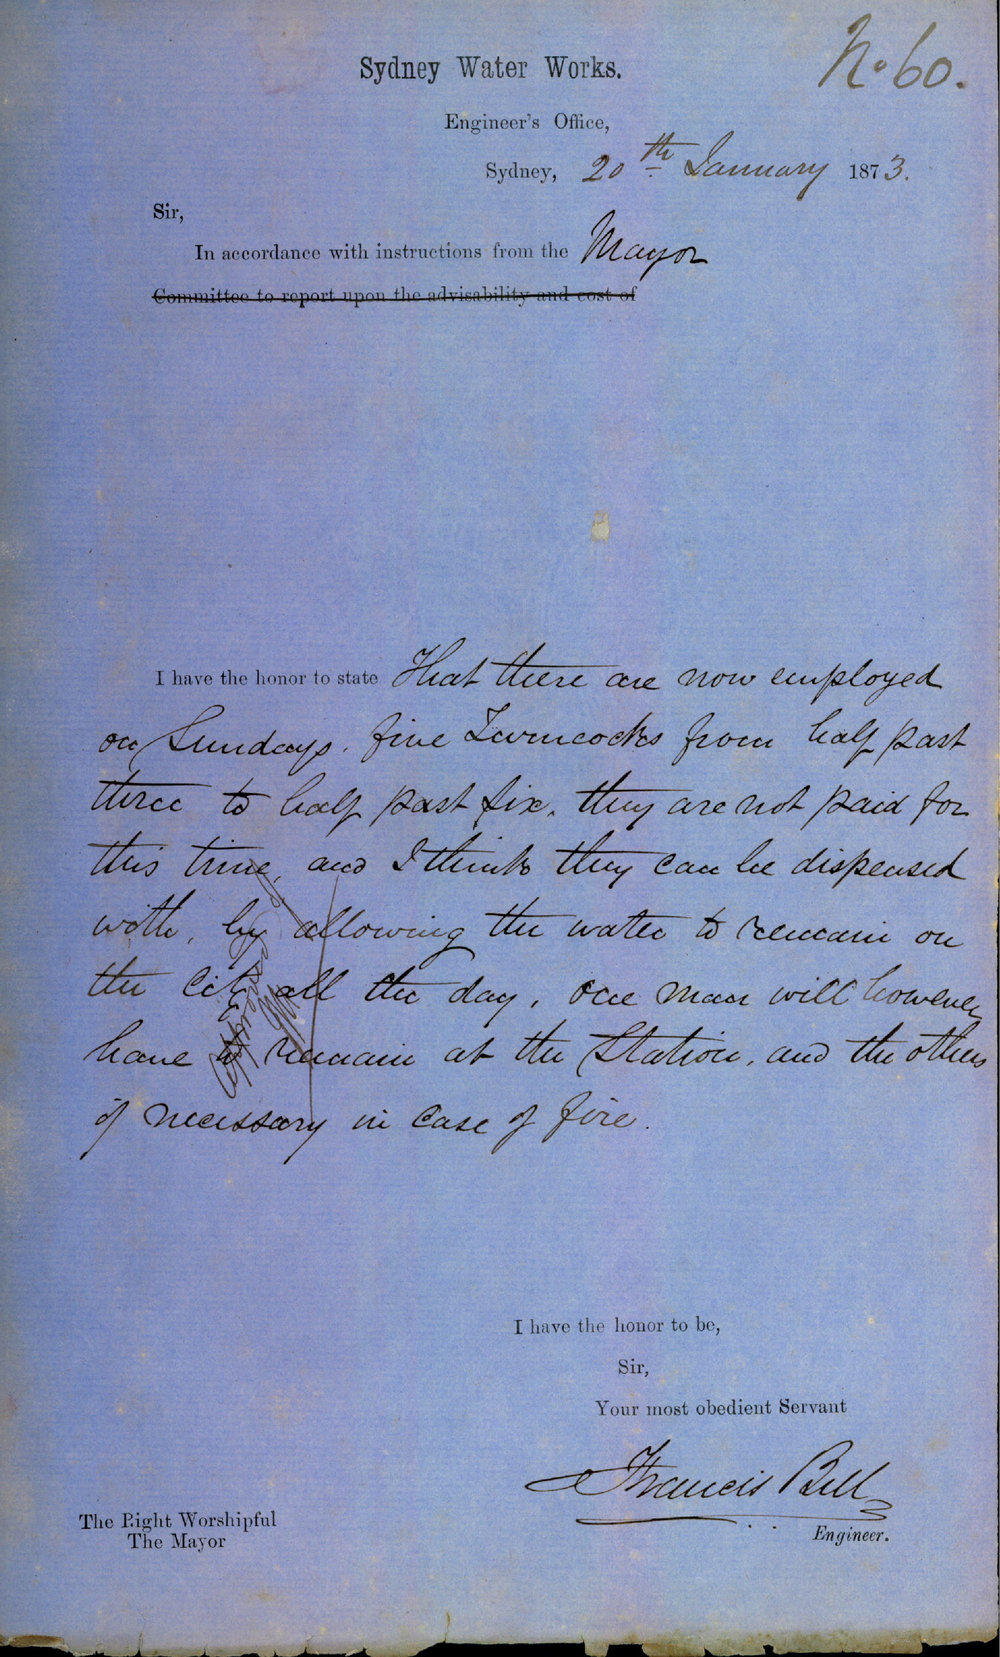 No. 60.
Sydney Water Works.
Engineer's Office,
Sydney, 20th January 1873.
Sir,
In accordance with instructions from the Mayor
Committee to report upon the advisability and cost of
I have the honor to state That there are now employed
on Sundays. five Turncocks from half past
three to half past six, they are not paid for
this time, and I think they can be dispensed
with, by allowing the water to remain on
the City all the day, one man will however
have to remain at the Station, and the others
if necessary in case of fire.
Approved
I have the honor to be,
Sir,
Your most obedient Servant
Francis Bell
Engineer.
The Right Worshipful
The Mayor